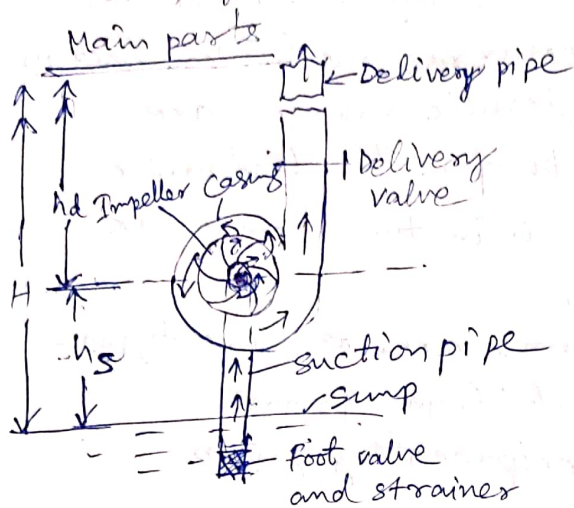 Main parts
Delivery pipe
Delivery
valve
hd Impeller Casing
H
hs
suction pipe
sump
Foot valve
and strainer